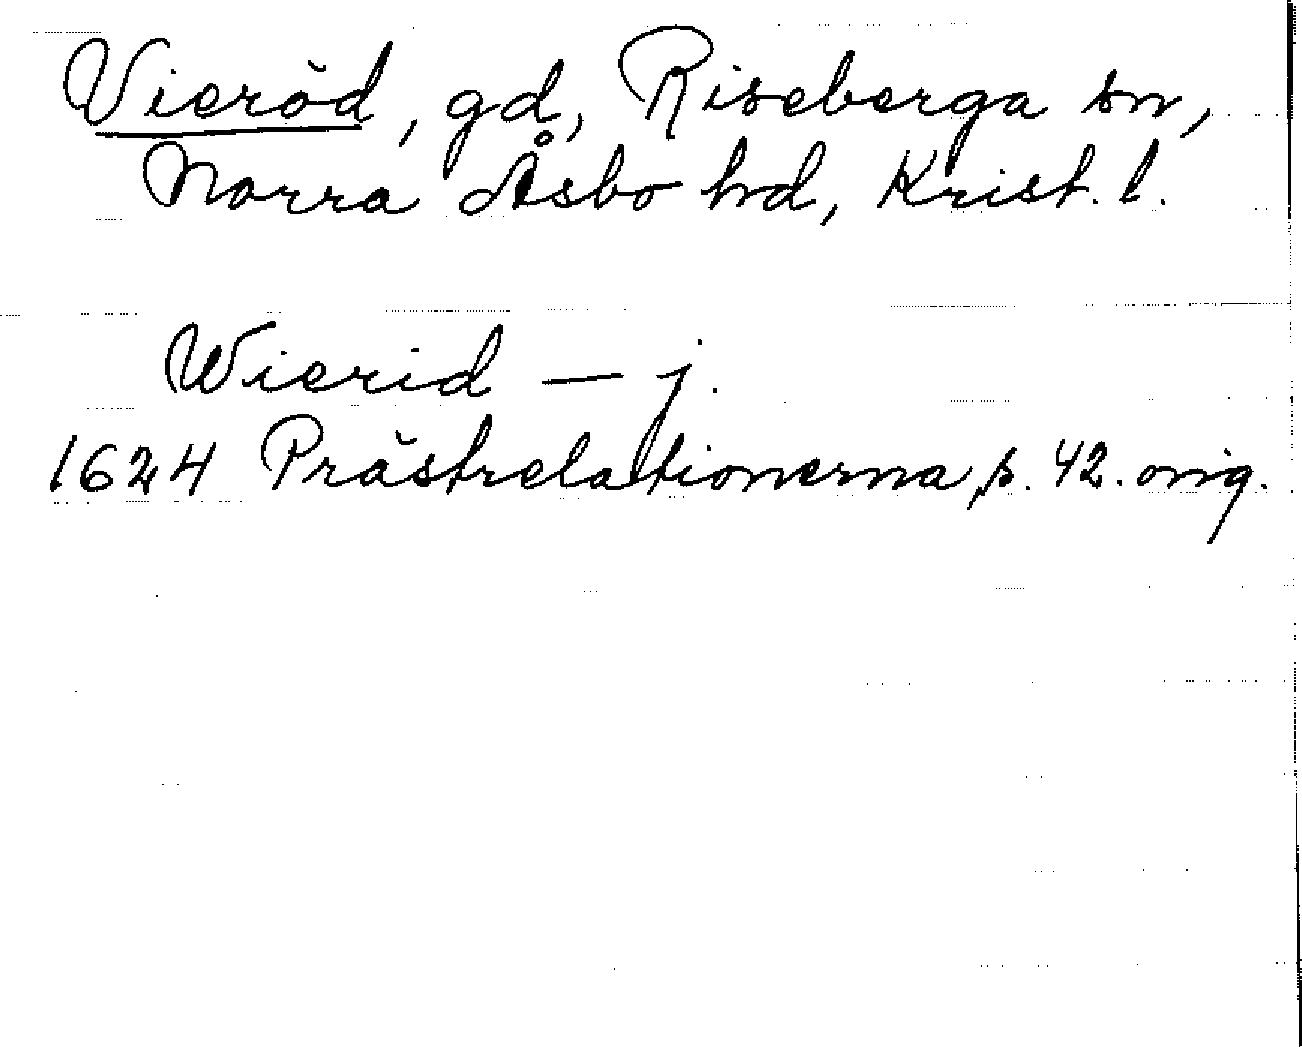 Vieröd, gd, Riseberga sn,
Norra Åsbo hd, Krist. l.
Wierid — j.
1624 Prästrelationerna, p. 42. orig.